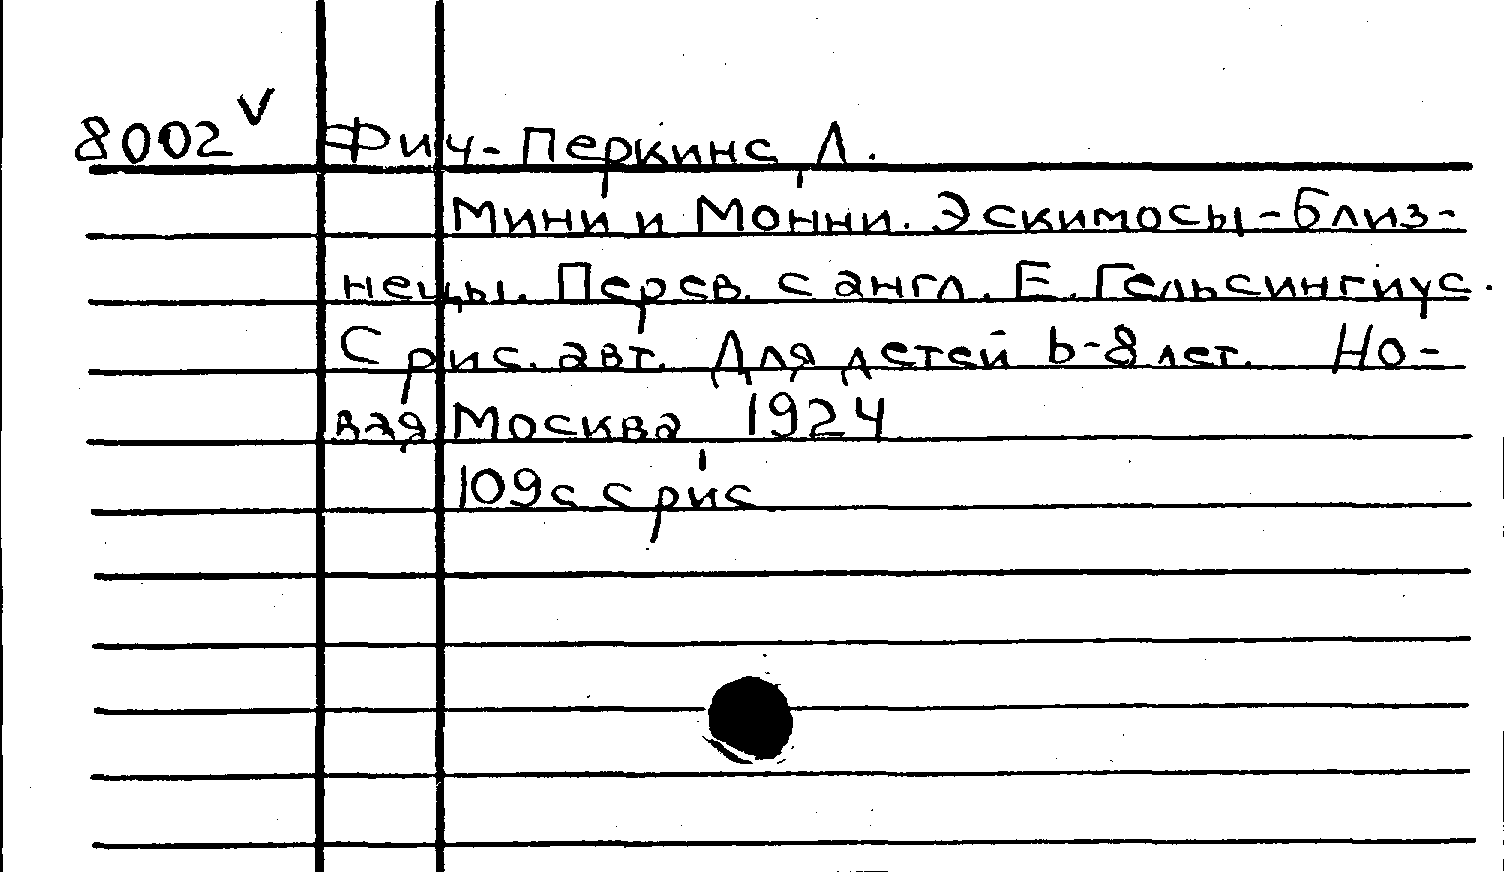 8002 V Фич-Перкинс Л.
Мини и Монни. Эскимосы-близ-
нецы. Перев. с англ. Е. Гельсингиус.
С рис. авт. Для детей 6-8 лет. Но-
вая Москва 1924
109с с рис